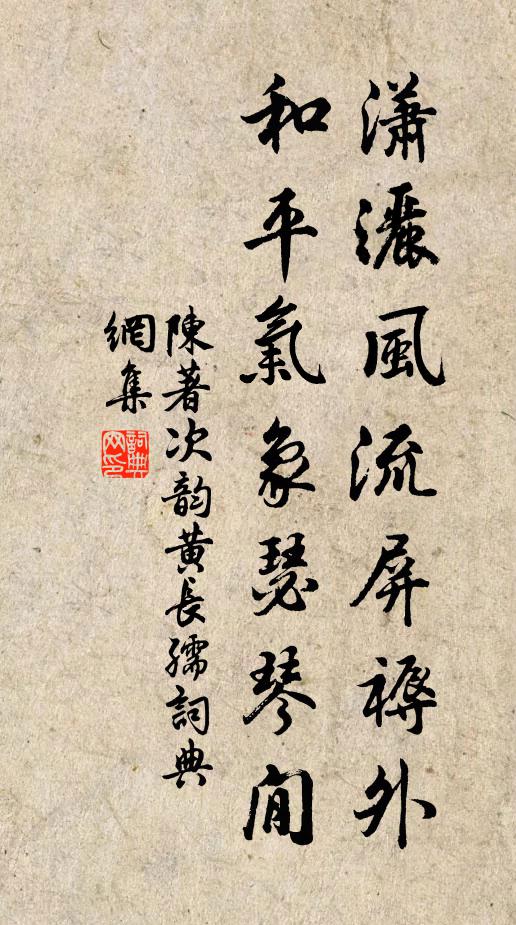 瀟灑風流屏褥外
和平氣象瑟琴間
陳著次韵黄長孺詞典
網集
詞典
网印